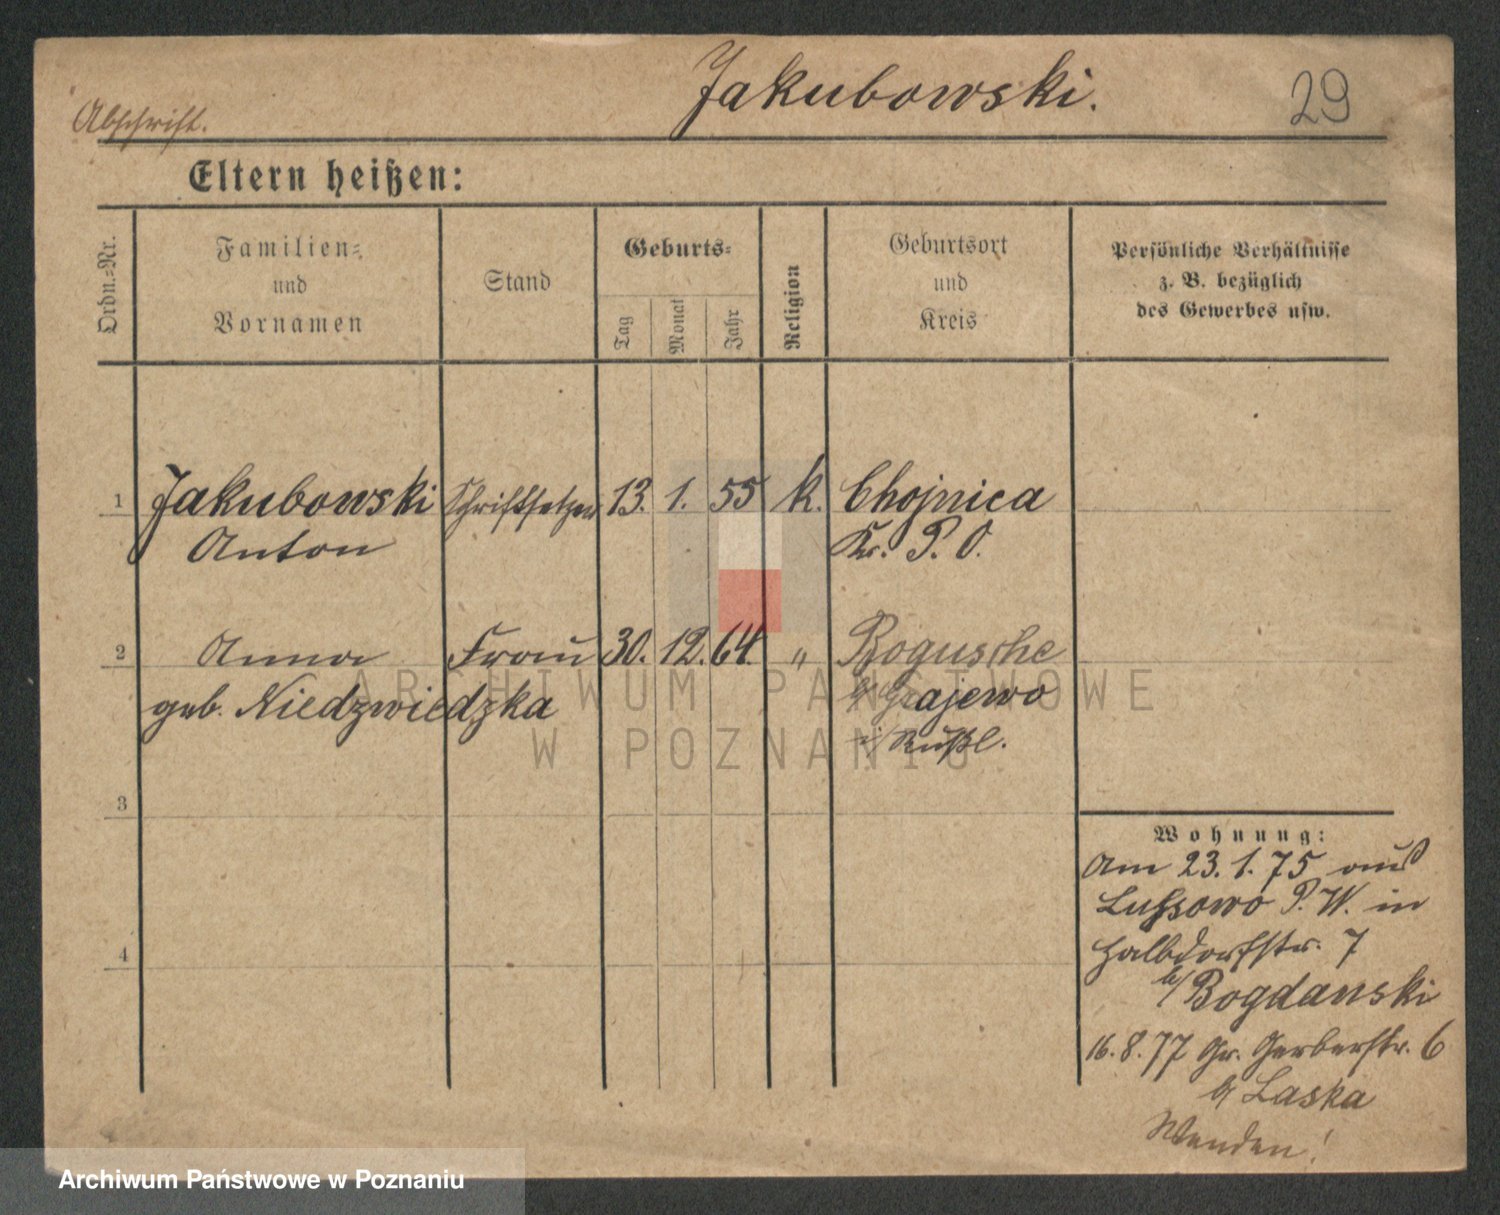 Jakubowski.
29
Abschrift.
Eltern heißen:
Ordn.=Nr.
Familien=
und
Vornamen
Stand
Geburts=
Tag
Monat
Jahr
Religion
Geburtsort
und
Kreis
Persönliche Verhältnisse
z. B. bezüglich
des Gewerbes usw.
1 Jakubowski Schriftsetzer 13. 1. 55 k. Chojnica
Anton Kr. P. O.
2 Anna Frau 30. 12. 64. " Bogusche
geb. Niedzwiedzka b/ Grajewo
i/ Rußl.
3
4
Wohnung:
Am 23. 1. 75 aus
Lussowo P. W. in
Halbdorfstr. 7
b/ Bogdanski
16. 8. 77 Gr. Gerberstr. 6
b/ Laska
Wenden!
ARCHIWUM PAŃSTWOWE
W POZNANIU
Archiwum Państwowe w Poznaniu